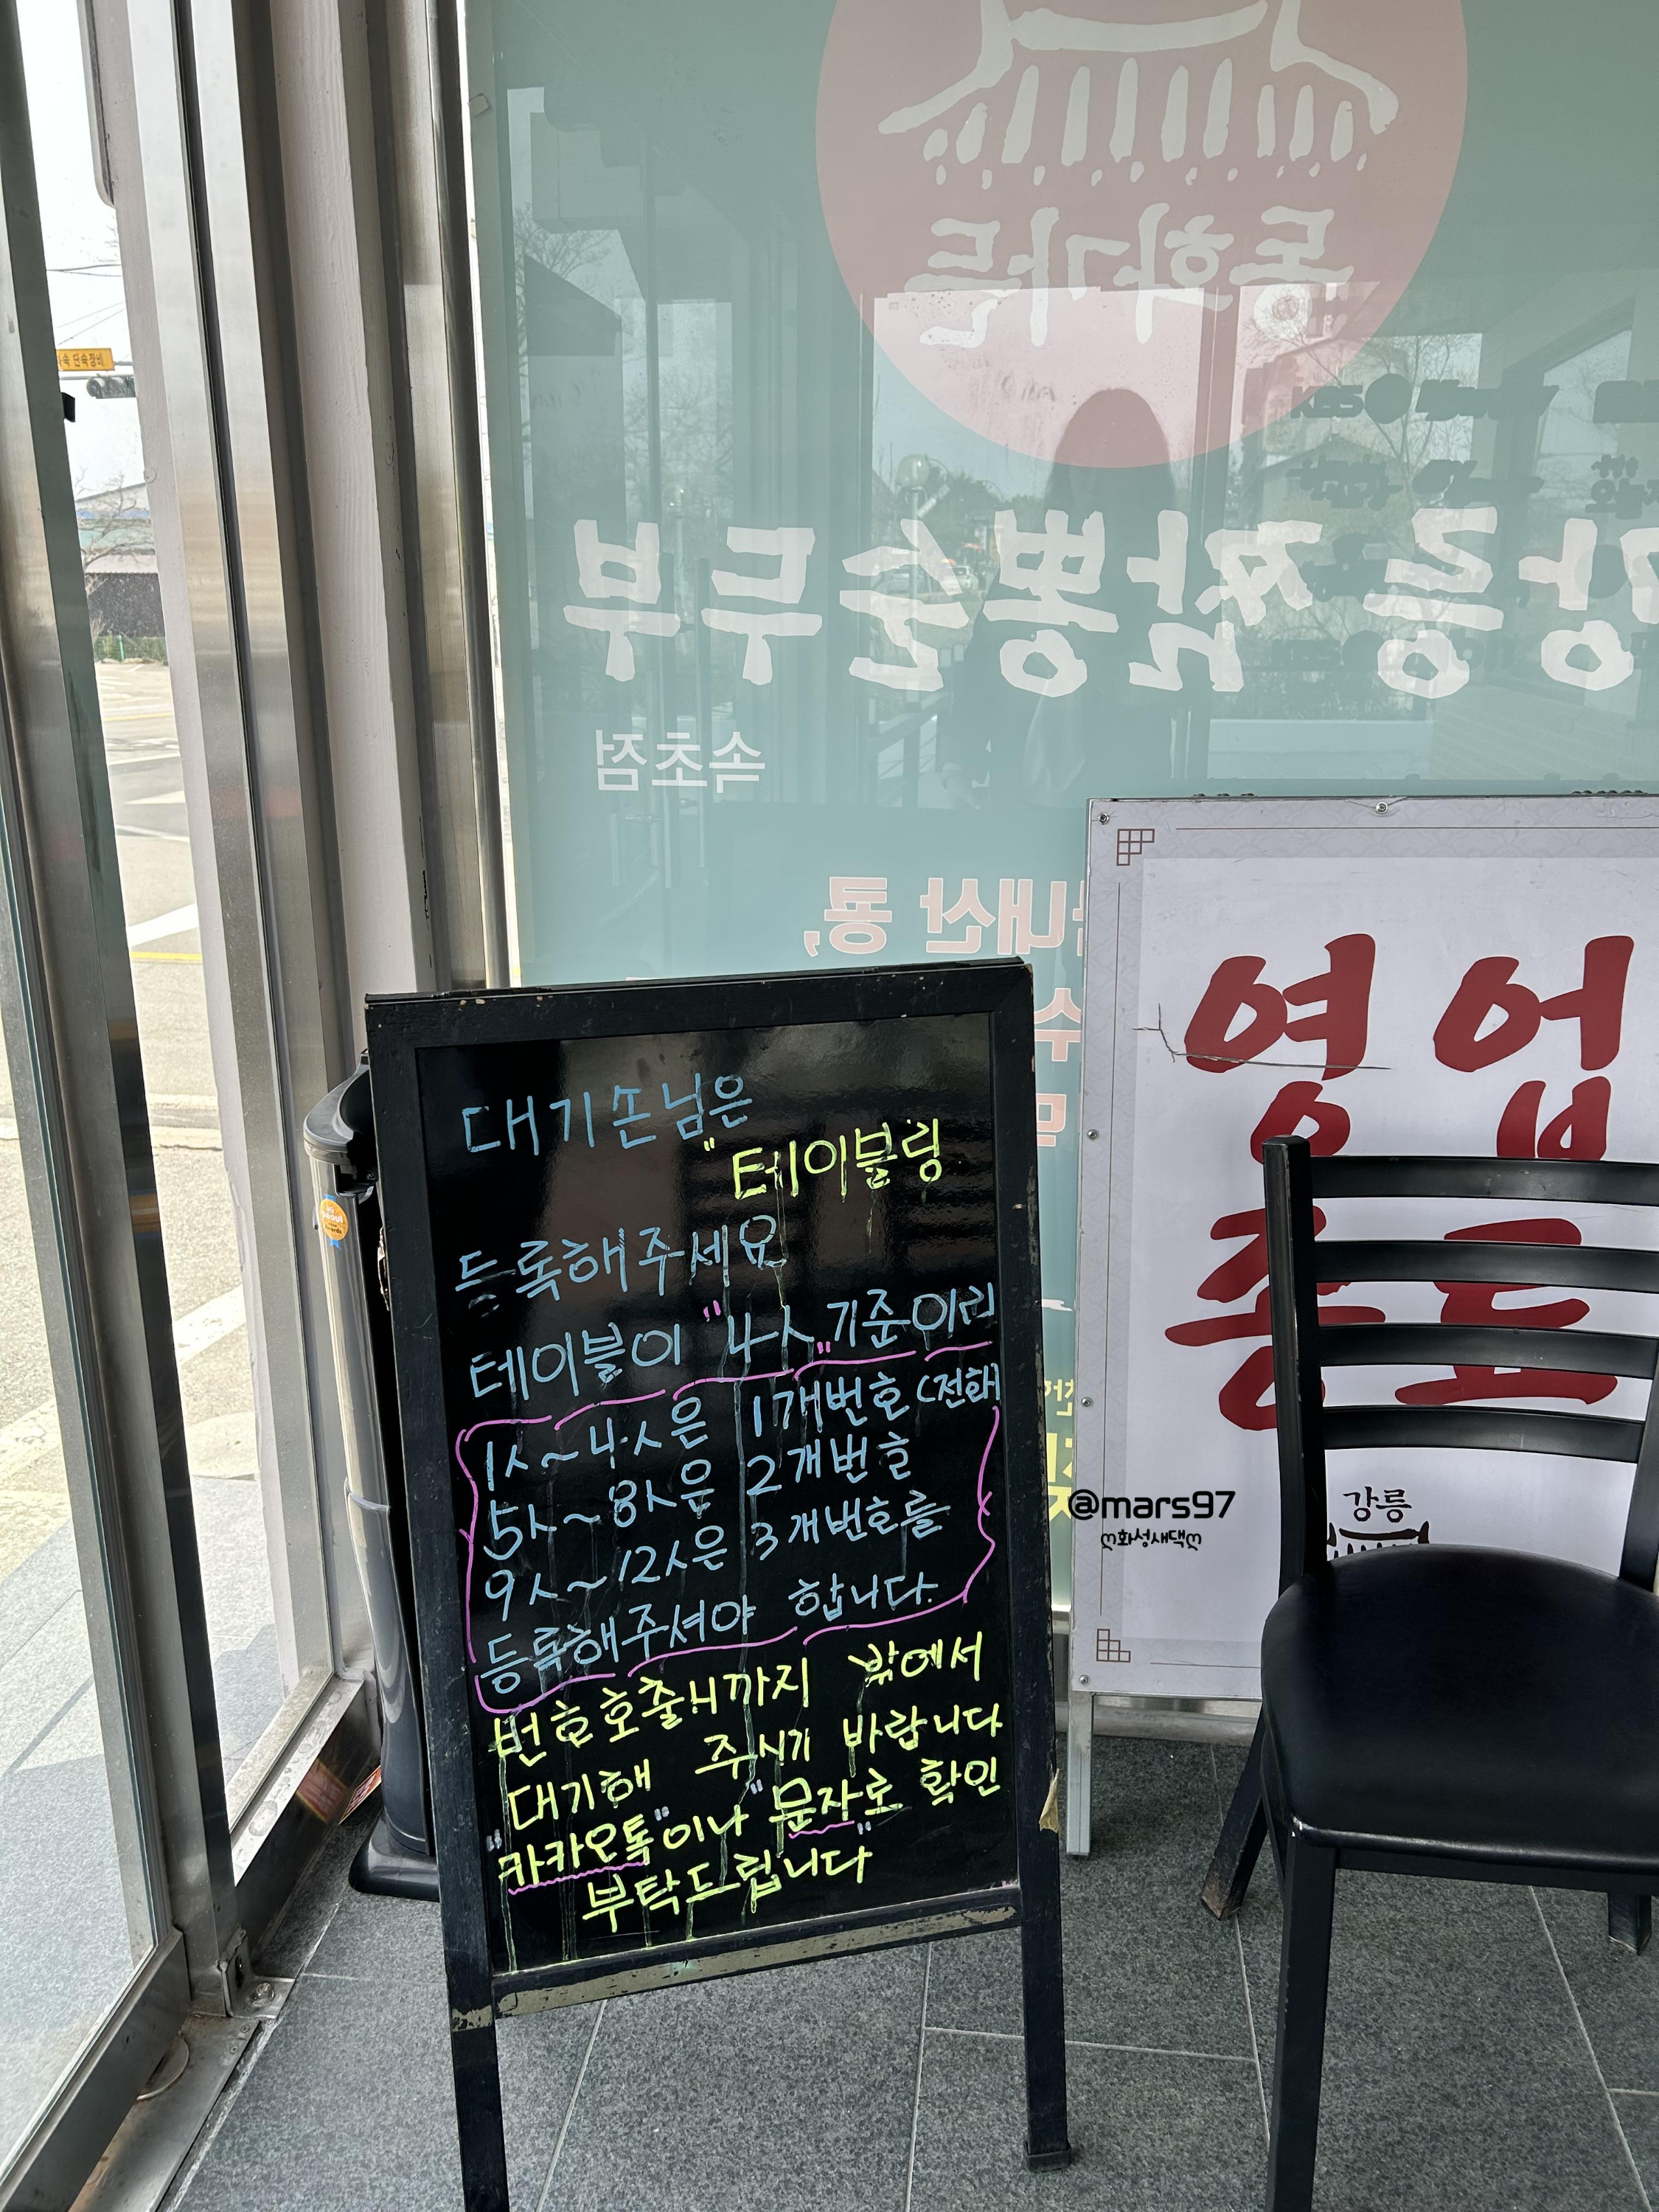 단속장비
동화가든
강릉 짬뽕순두부
속초점
내산 콩,
대기손님은
"테이블링
등록해주세요
테이블이 "4人" 기준이라
1人~4人은 1개번호(전화
5人~8人은 2개번호
9人~12人은 3개번호를
등록해주셔야 합니다.
번호호출시까지 밖에서
대기해 주시기 바랍니다
"카카오톡"이나 "문자로" 확인
부탁드립니다
영업
종료
강릉
@mars97
ღ화성새댁ღ